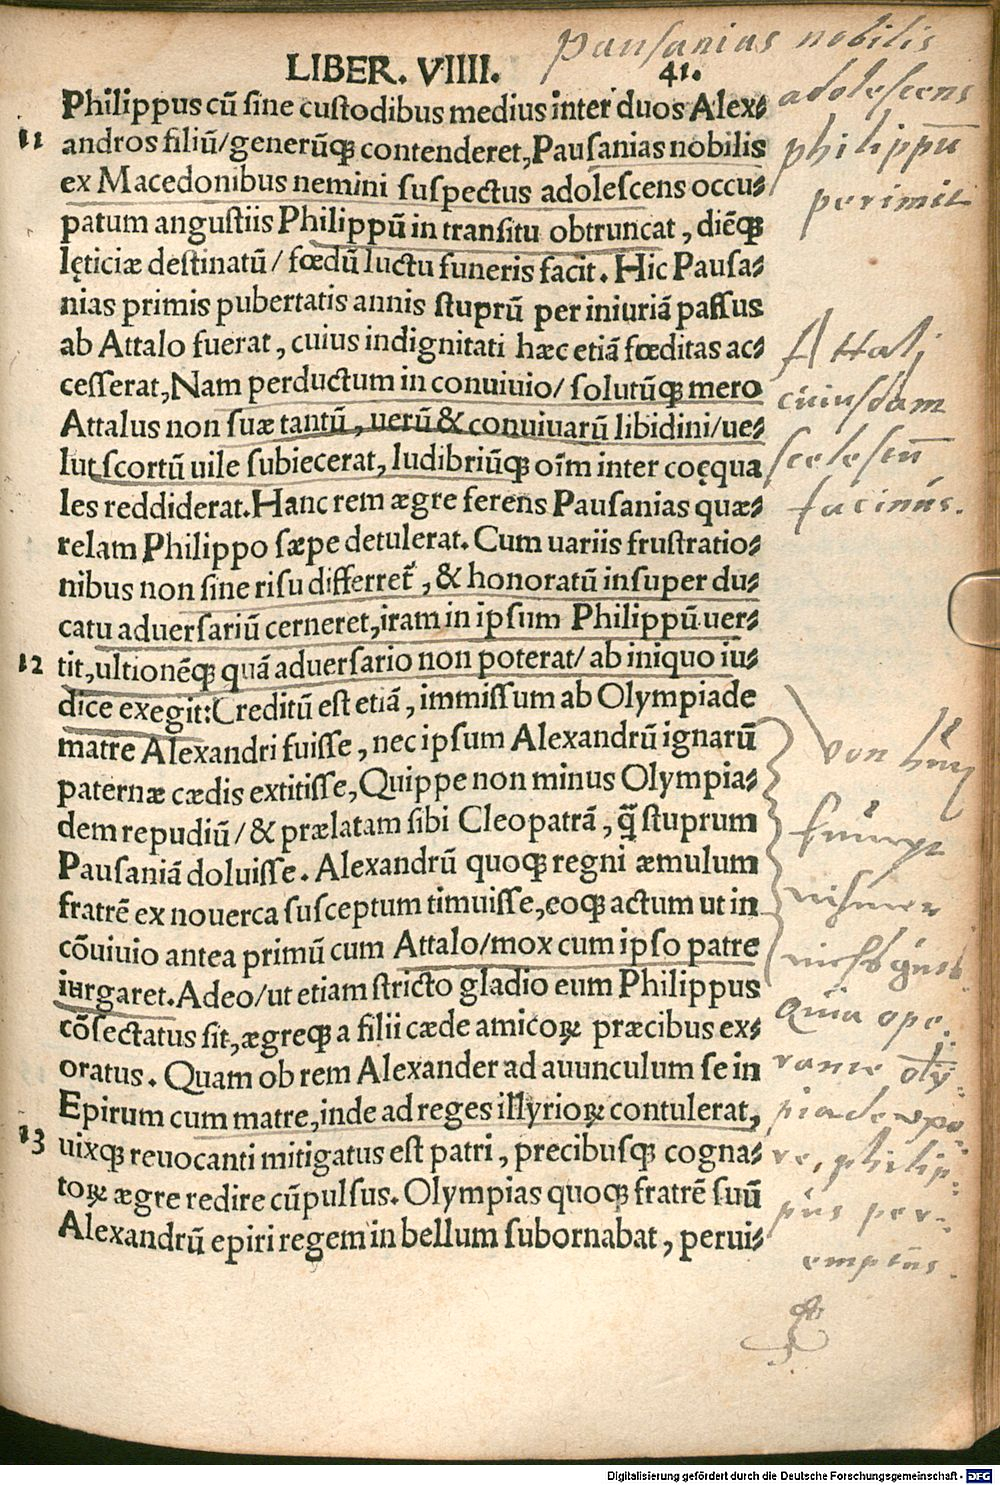 LIBER. VIIII. 41.
Philippus cū sine custodibus medius inter duos Alex⸗
andros filiū/generūqꝫ contenderet, Pausanias nobilis
ex Macedonibus nemini suspectus adolescens occu⸗
patum angustiis Philippū in transitu obtruncat, diēqꝫ
lęticiæ destinatū/ fœdū luctu funeris facit. Hic Pausa⸗
nias primis pubertatis annis stuprū per iniuriā passus
ab Attalo fuerat, cuius indignitati hæc etiā fœditas ac⸗
cesserat, Nam perductum in conuiuio/ solutūqꝫ mero
Attalus non suæ tantū, uerū & conuiuarū libidini/ue⸗
lut scortū uile subiecerat, ludibriūqꝫ oīm inter coęqua
les reddiderat. Hanc rem ægre ferens Pausanias quæ⸗
relam Philippo sæpe detulerat. Cum uariis frustratio⸗
nibus non sine risu differret̃, & honoratū insuper du⸗
catu aduersariū cerneret, iram in ipsum Philippū uer⸗
tit, ultionēqꝫ quā aduersario non poterat/ ab iniquo iu⸗
dice exegit: Creditū est etiā, immissum ab Olympiade
matre Alexandri fuisse, nec ipsum Alexandrū ignarū
paternæ cædis extitisse, Quippe non minus Olympia⸗
dem repudiū/ & prælatam sibi Cleopatrā, q̄ stuprum
Pausaniā doluisse. Alexandrū quoqꝫ regni æmulum
fratrē ex nouerca susceptum timuisse, eoqꝫ actum ut in
cōuiuio antea primū cum Attalo/mox cum ipso patre
iurgaret. Adeo/ut etiam stricto gladio eum Philippus
cōsectatus sit, ægreqꝫ a filii cæde amicoꝝ præcibus ex⸗
oratus. Quam ob rem Alexander ad auunculum se in
Epirum cum matre, inde ad reges illyrioꝝ contulerat,
uixqꝫ reuocanti mitigatus est patri, precibusqꝫ cogna⸗
toꝝ ægre redire cūpulsus. Olympias quoqꝫ fratrē suū
Alexandrū epiri regem in bellum subornabat, perui⸗
11
12
13
Pausanias nobilis
adolescens
philippū
perimit
Attalj
cuiusdam
scelestū
facinus.
von
nichs guts
Quia ope⸗
rante olȳ⸗
piade vxo⸗
re, philip⸗
pus per⸗
emptus.
Digitalisierung gefördert durch die Deutsche Forschungsgemeinschaft - DFG